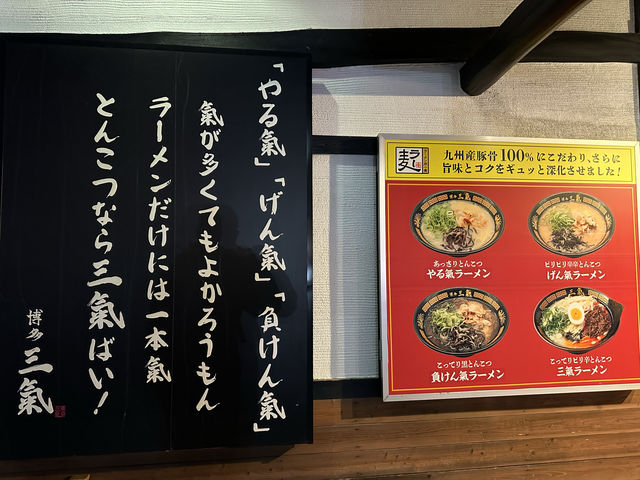 「やる氣」「げん氣」「負けん氣」
氣が多くてもよかろうもん
ラーメンだけには一本氣
とんこつなら三氣ばい！
博多三氣
ラー麦
九州産豚骨100%にこだわり、さらに
旨味とコクをギュッと深化させました！
あっさりとんこつ
やる氣ラーメン
ピリピリ辛辛とんこつ
げん氣ラーメン
こって黒とんこつ
負けん氣ラーメン
こってりピリ辛とんこつ
三氣ラーメン